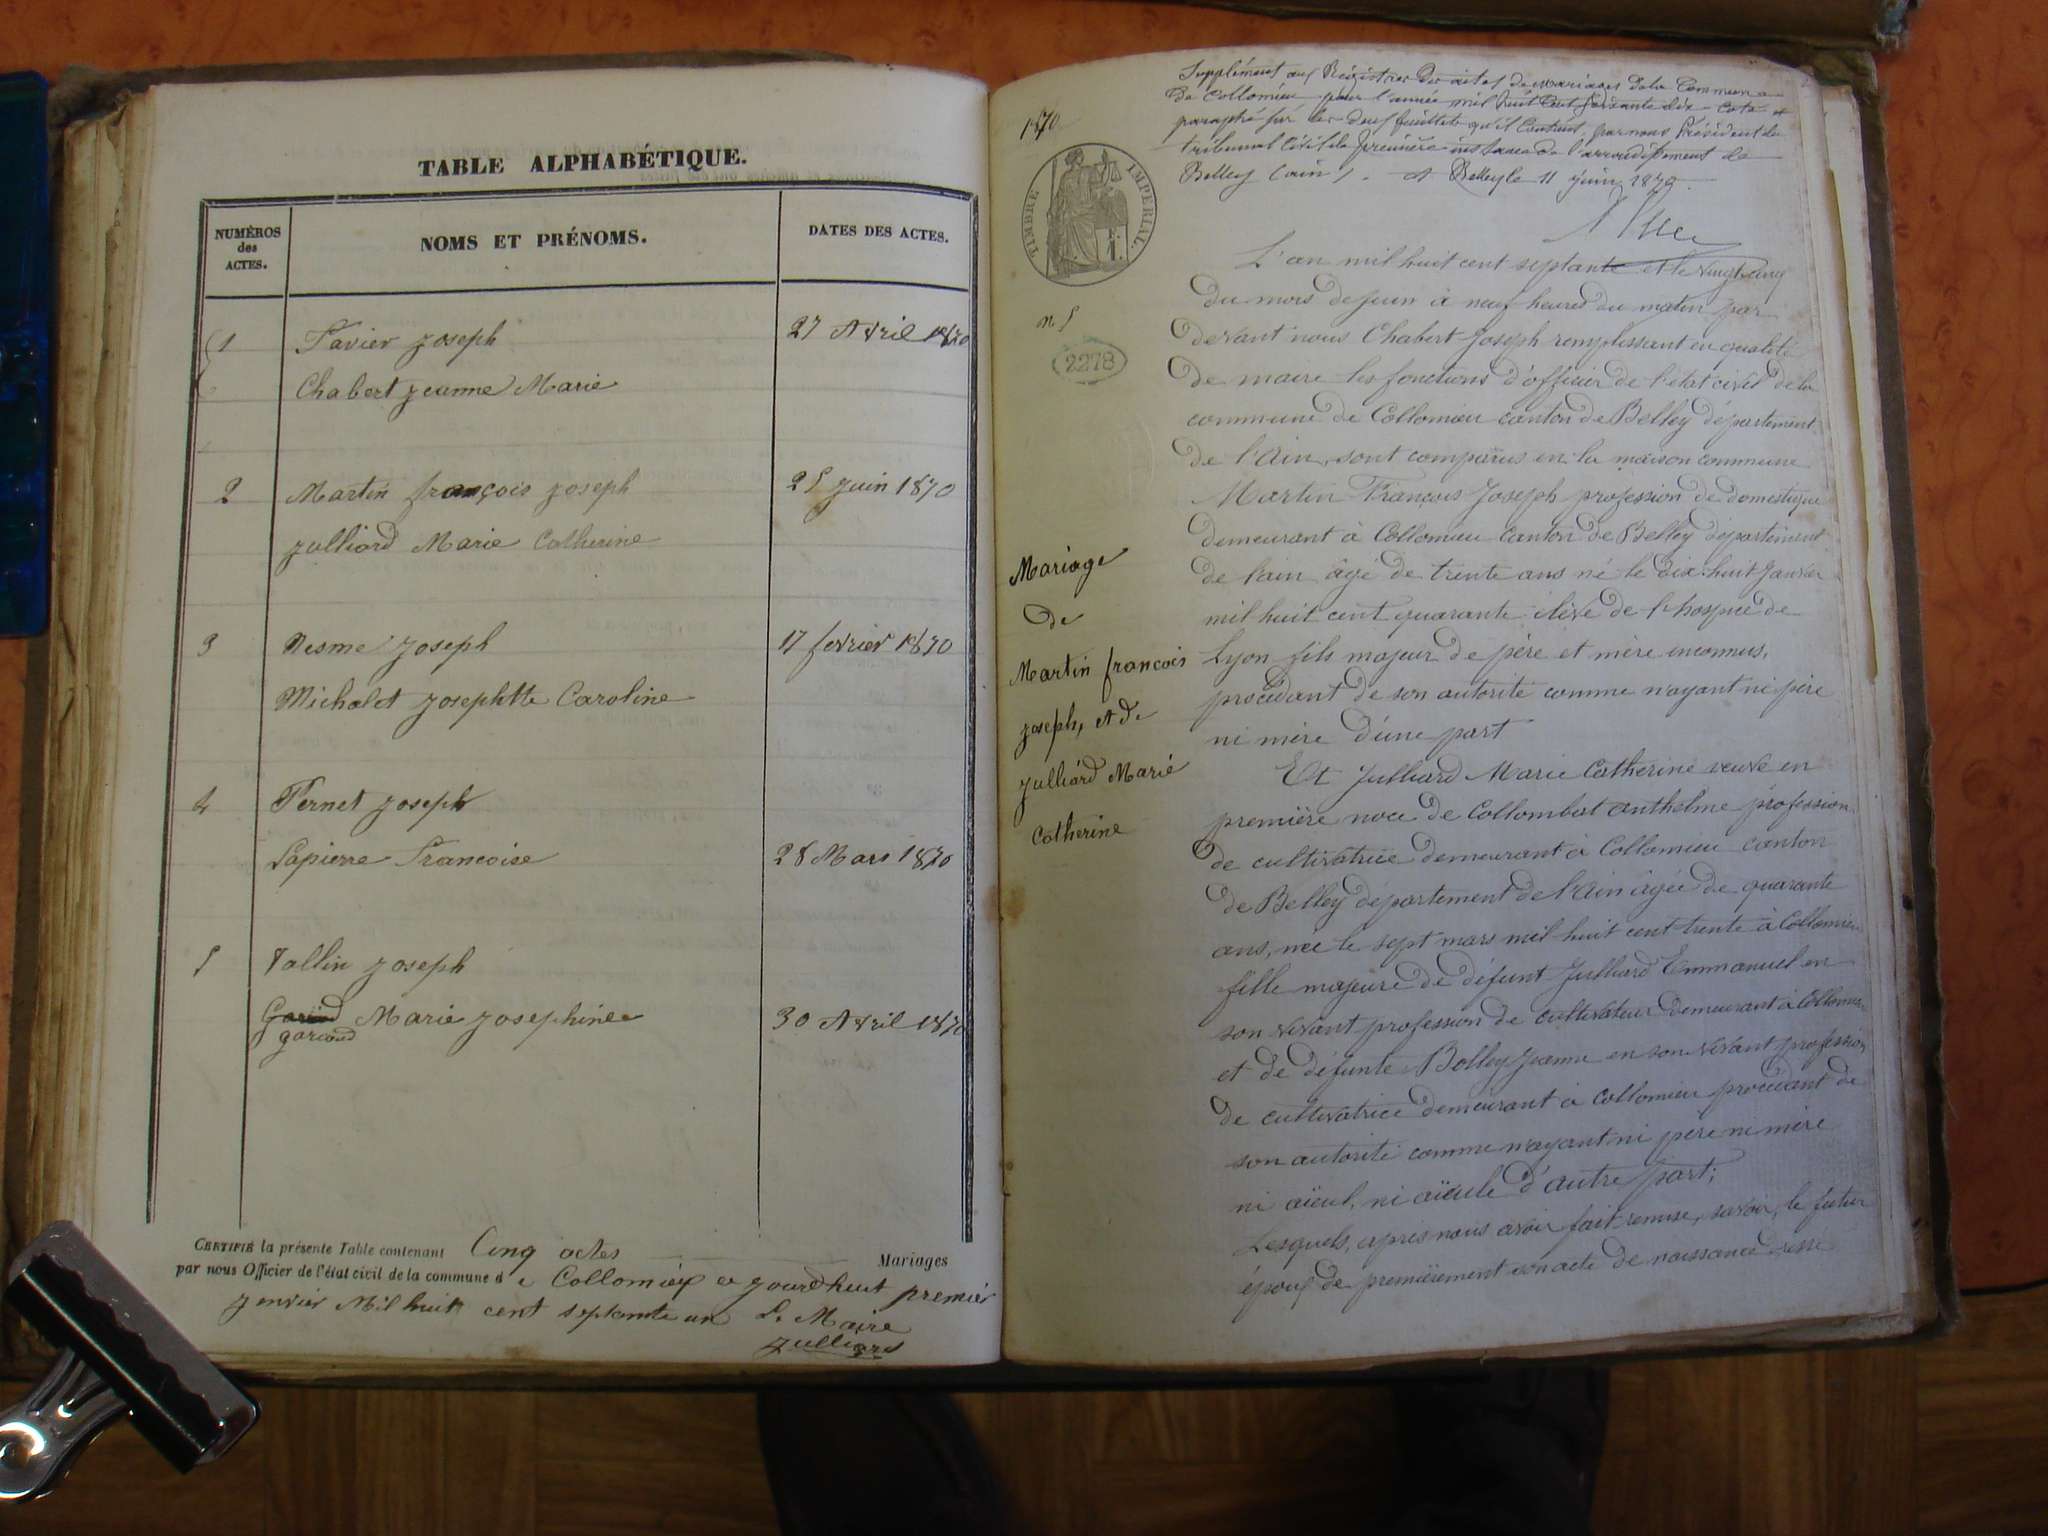 TABLE ALPHABÉTIQUE.
NUMÉROS des ACTES.
NOMS ET PRÉNOMS.
DATES DES ACTES.
1 Favier Joseph 27 Avril 1870
Chabert Jeanne Marie
2 Martin françois Joseph 25 Juin 1870
Julliard Marie Catherine
3 Nesme Joseph 17 fevrier 1870
Michalet Josephtte Caroline
4 Pernet Joseph
Lapierre Francoise 28 Mars 1870
5 Tallin Joseph
Marie Josephine 30 Avril 1870
garioud
CERTIFIÉ la présente Table contenant Cinq actes Mariages
par nous Officier de l'état civil de la commune d e Collomieu
premier
Janvier Mil huit cent septante un Le Maire
Julliard
1870
Supplément aux Régistres des actes de mariages de la Commune
de Collomieu pour l'année mil huit cent soixante dix coté et
paraphé sur les deux feuillets qu'il contient, par nous Président du
tribunal Civil de première instance de l'arrondissement de
Belley (ain). A Belley le 11 juin 1870.
TIMBRE IMPERIAL.
n. 5
2278
Mariage
de
Martin francois
Joseph, et de
Julliard Marie
Catherine
L'an mil huit cent septante et le vingt cinq
du mois de Juin à neuf heures du matin par
devant nous Chabert Joseph remplissant en qualité
de maire les fonctions d'officier de l'état civil de la
commune de Collomieu canton de Belley département
de l'Ain, sont comparus en la maison commune
Martin François Joseph profession de domestique
demeurant à Collomieu canton de Belley département
de l'ain âgé de trente ans né le dix-huit Janvier
mil huit cent quarante élève de l'hospice de
Lyon fils majeur de père et mère inconnus,
procédant de son autorité comme n'ayant ni père
ni mère d'une part
Et Julliard Marie Catherine veuve en
première noce de Collombat Anthelme profession
de cultivatrice demeurant à Collomieu canton
de Belley département de l'Ain âgée de quarante
ans, née le sept mars mil huit cent trente à Collomieu
fille majeure de défunt Julliard Emmanuel en
son vivant profession de cultivateur demeurant à Collomieu
et de défunte Bolley Jeanne en son vivant profession
de cultivatrice demeurant à Collomieu procédant de
son autorité comme n'ayant ni père ni mère
ni aïeul, ni aïeule d'autre part;
Lesquels, après nous avoir fait remise, savoir, le futur
époux de premièrement son acte de naissance